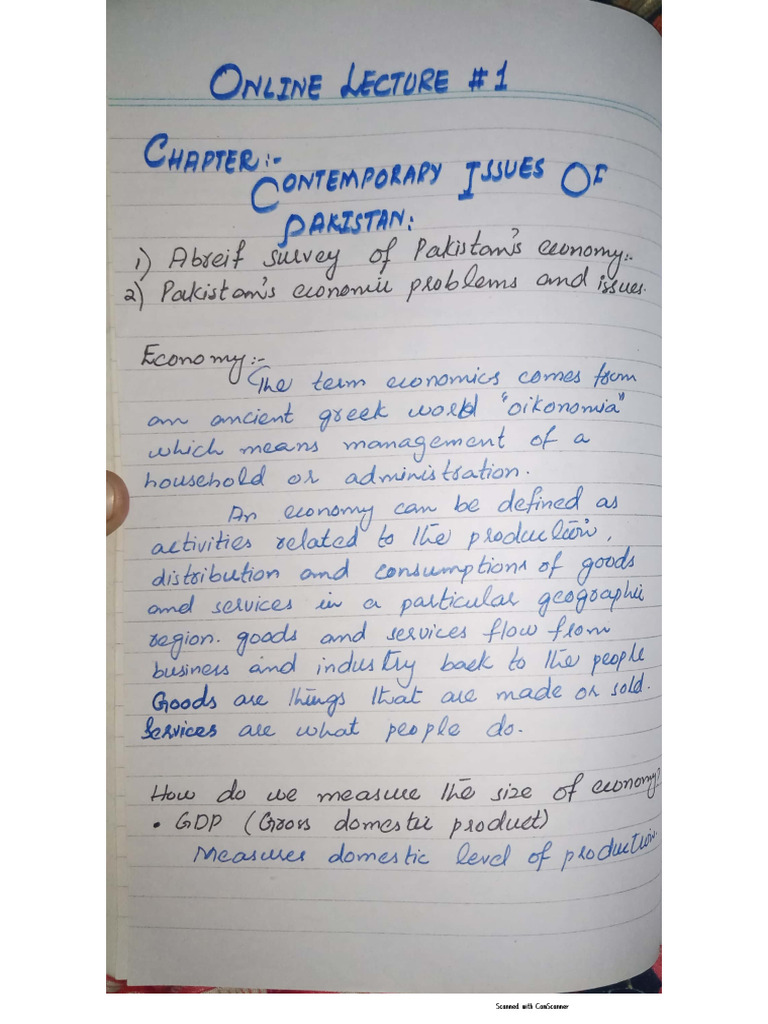 ONLINE LECTURE #1
CHAPTER:-
CONTEMPORARY ISSUES OF
PAKISTAN:
1) Abreif survey of Pakistan's economy:.
2) Pakistan's economic problems and issues.
Economy:-
The term economics comes from
an ancient greek world "oikonomia"
which means management of a
household or administration.
An economy can be defined as
activities related to the production,
distribution and consumptions of goods
and services in a particular geographic
region. goods and services flow from
business and industry back to the people
Goods are things that are made or sold.
Services are what people do.
How do we measure the size of economy?
• GDP (Gross domestic product)
Measures domestic level of production.
Scanned with CamScanner